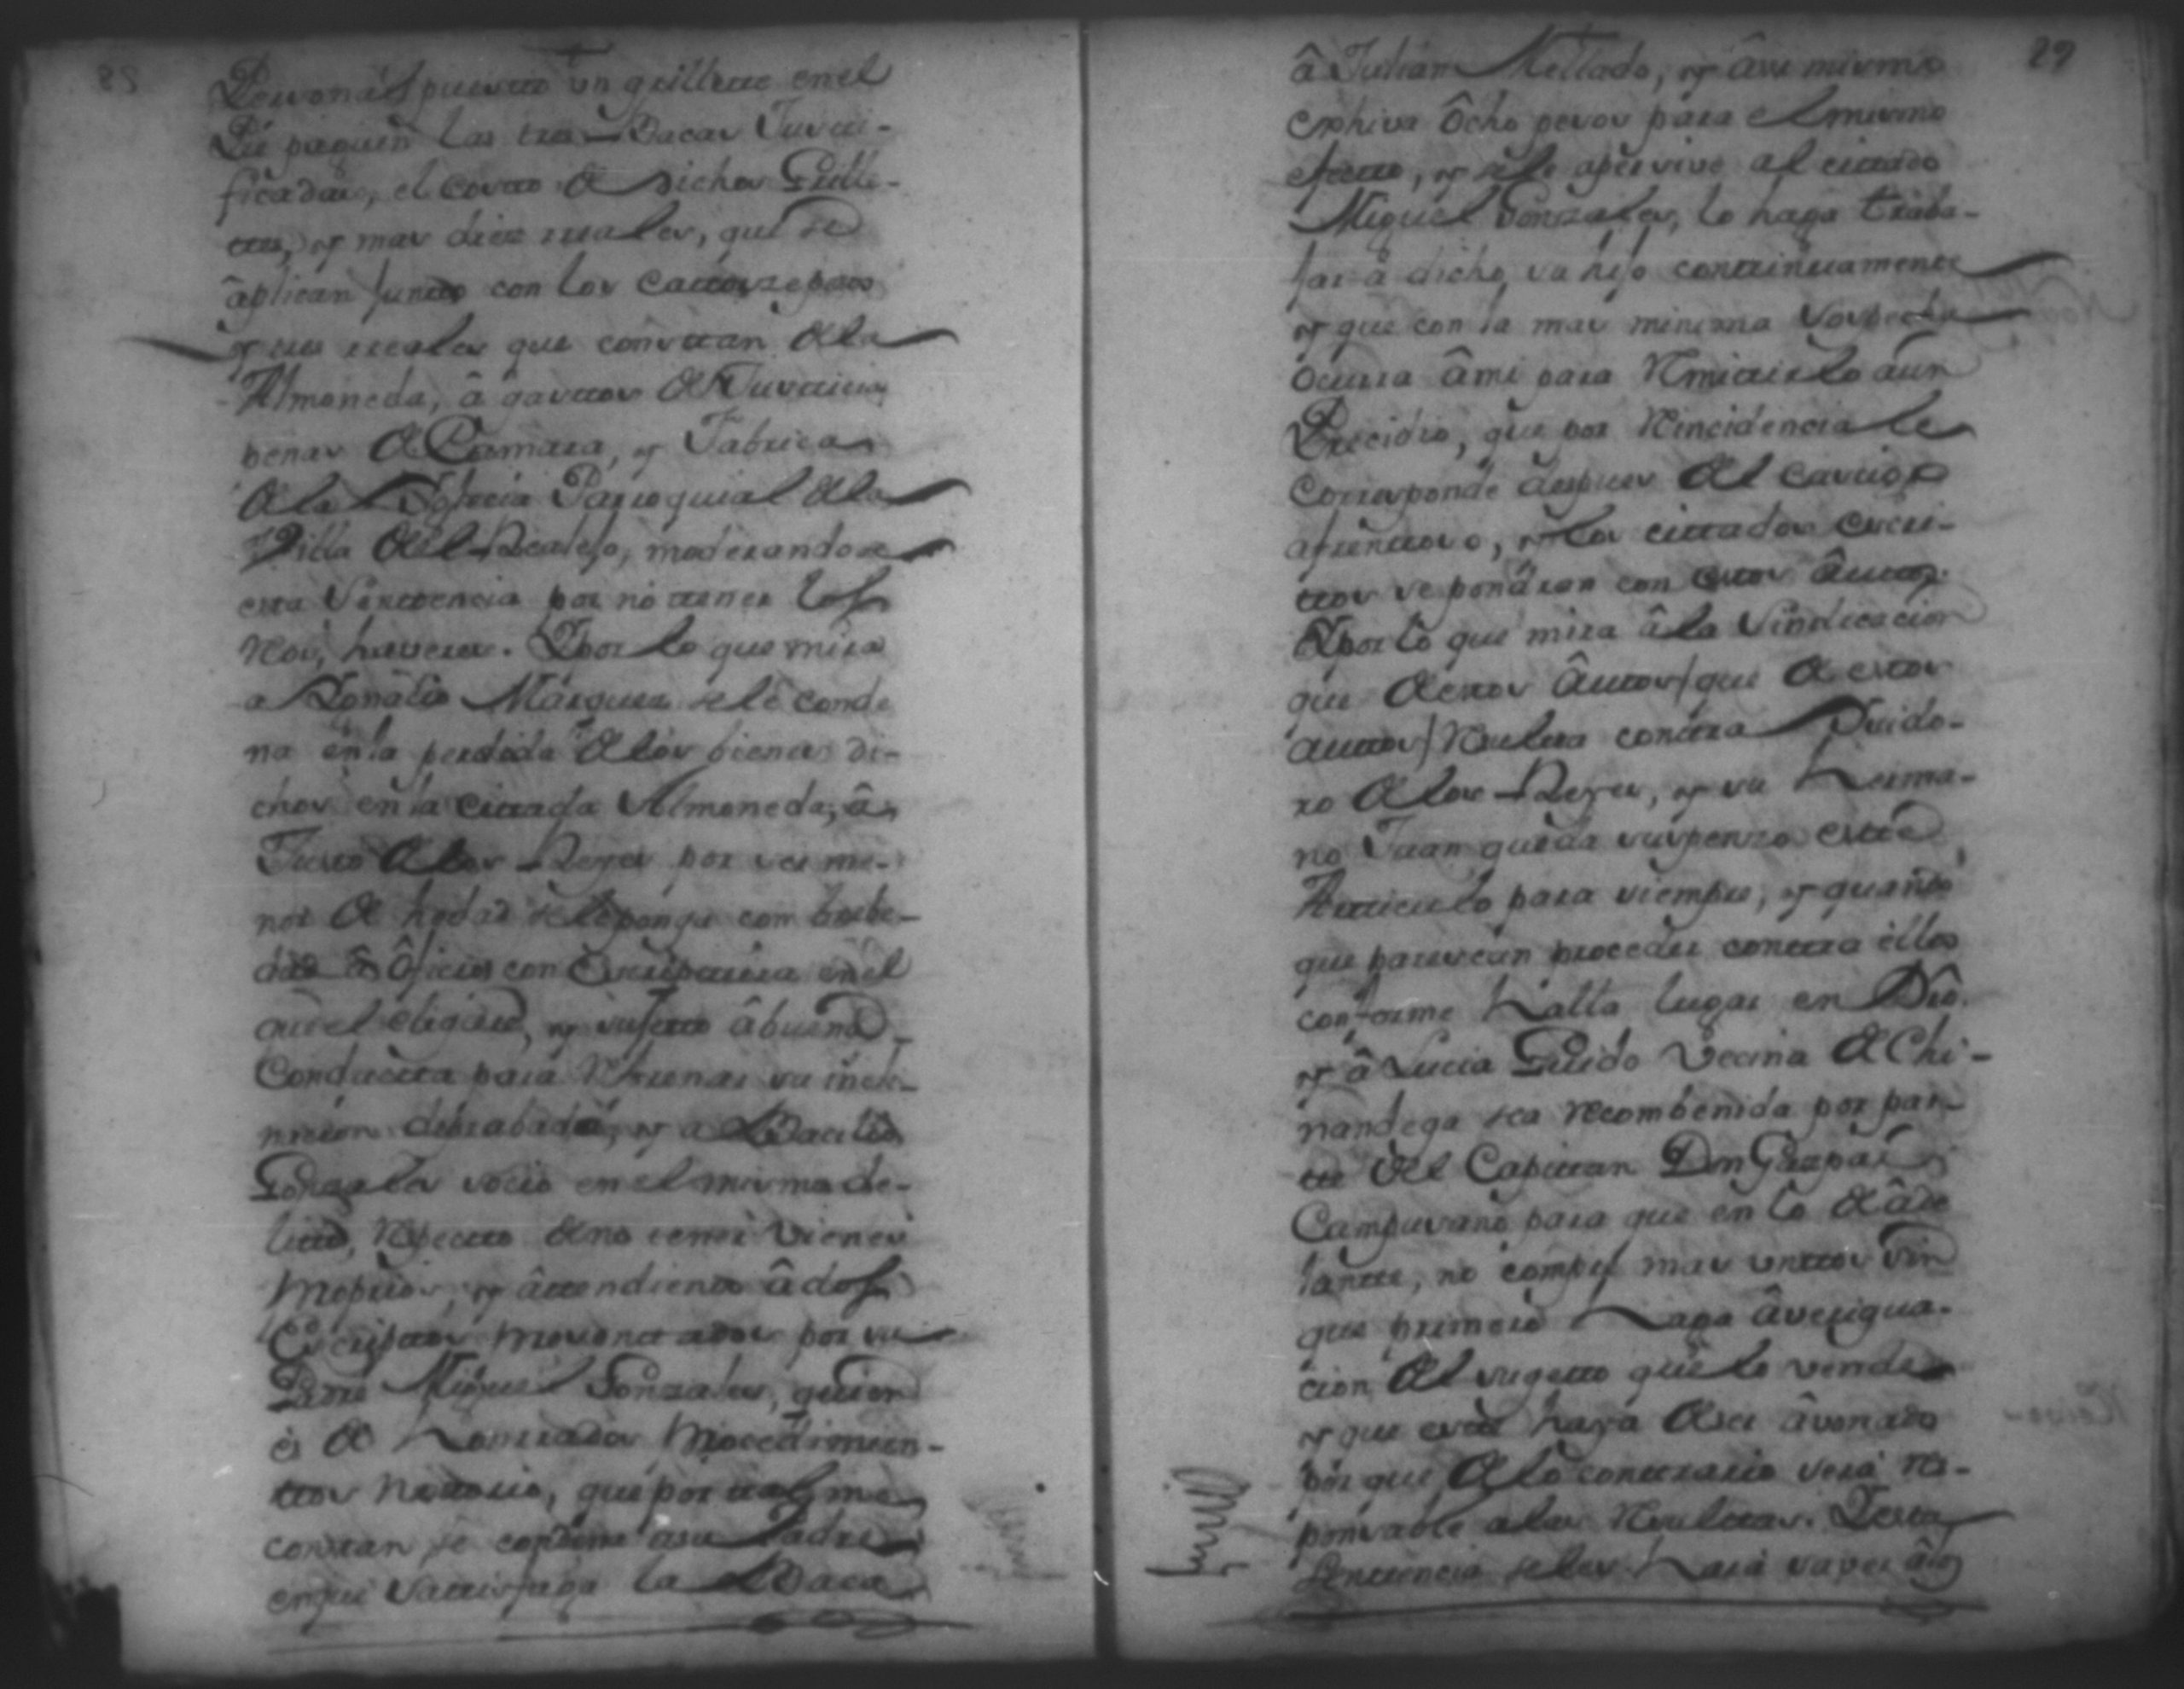 28
Personas puesto un grillete en el
Pie paguen las tres Bacas Justi-
ficadas, el costo de dichos Grille-
tes, y mas diez reales, que se
âplican junto con los Catorze pesos
y tres reales que constan de la
Almoneda, â gastos de Justicia
penas de Camara, y Fabrica
de la Iglecia Parroquial de la
Villa del Realejo, moderandose
esta Sentencia por no tener los
Reos, haveres. Y por lo que mira
a Ignacio Marques se le conde
na en la perdida de los bienes di-
chos en la citada Almoneda, â
Justo de los Reyes por ser me-
nor de hedad se le ponga con brebe-
dad â Oficio con Escriptura en el
que el eligiere, y sujeto â buena
Conducta para refrenar su incli-
nacion deprabada, y a Bacilio
Gonzales socio en el mismo de-
lito, respecto de no tener vienes
propios, y âttendiendo â dos
Escriptos presentados por su
Padre Miguel Gonzales, quien
es de honrrados procedimien-
tos notorio, que por tal me
constan, se condena a su Padre
en que sattisfaga la Baca
29
â Julian Mellado, y âsi mismo
exhiva Ôcho pesos para el mismo
efecto, y se le apercive al cittado
Miguel Gonzales, lo haga traba-
jar â dicho su hijo continuamente
y que con la mas minima sospecha
ocurra âmi para remitirlo â un
Precidio, que por reincidencia le
corresponde despues del castigo
afrentoso, y los cittados escri-
tos se pondran con estos âutos.
Y por lo que mira â la Vindicacion
que de estos âutos / que de estos
auttos / resulta contra Isido-
ro de los Reyes, y su herma-
no Juan queda suspenzo este
Articulo para siempre, y quando
que parescan proceder contra ellos
conforme halla lugar en Dro.
y â Lucia Guido Vecina de Chi-
nandega sea recombenida por par-
te del Capitan Don Gaspar
Campusano para que en lo de âde
lante, no compre mas untos sin
que primero haga âverigua-
cion del sugeto que lo vende
y que este haya de ser âvonado
por que de lo contrario será res-
ponsable a las resultas. Y esta
Sentencia se les hará saver â los